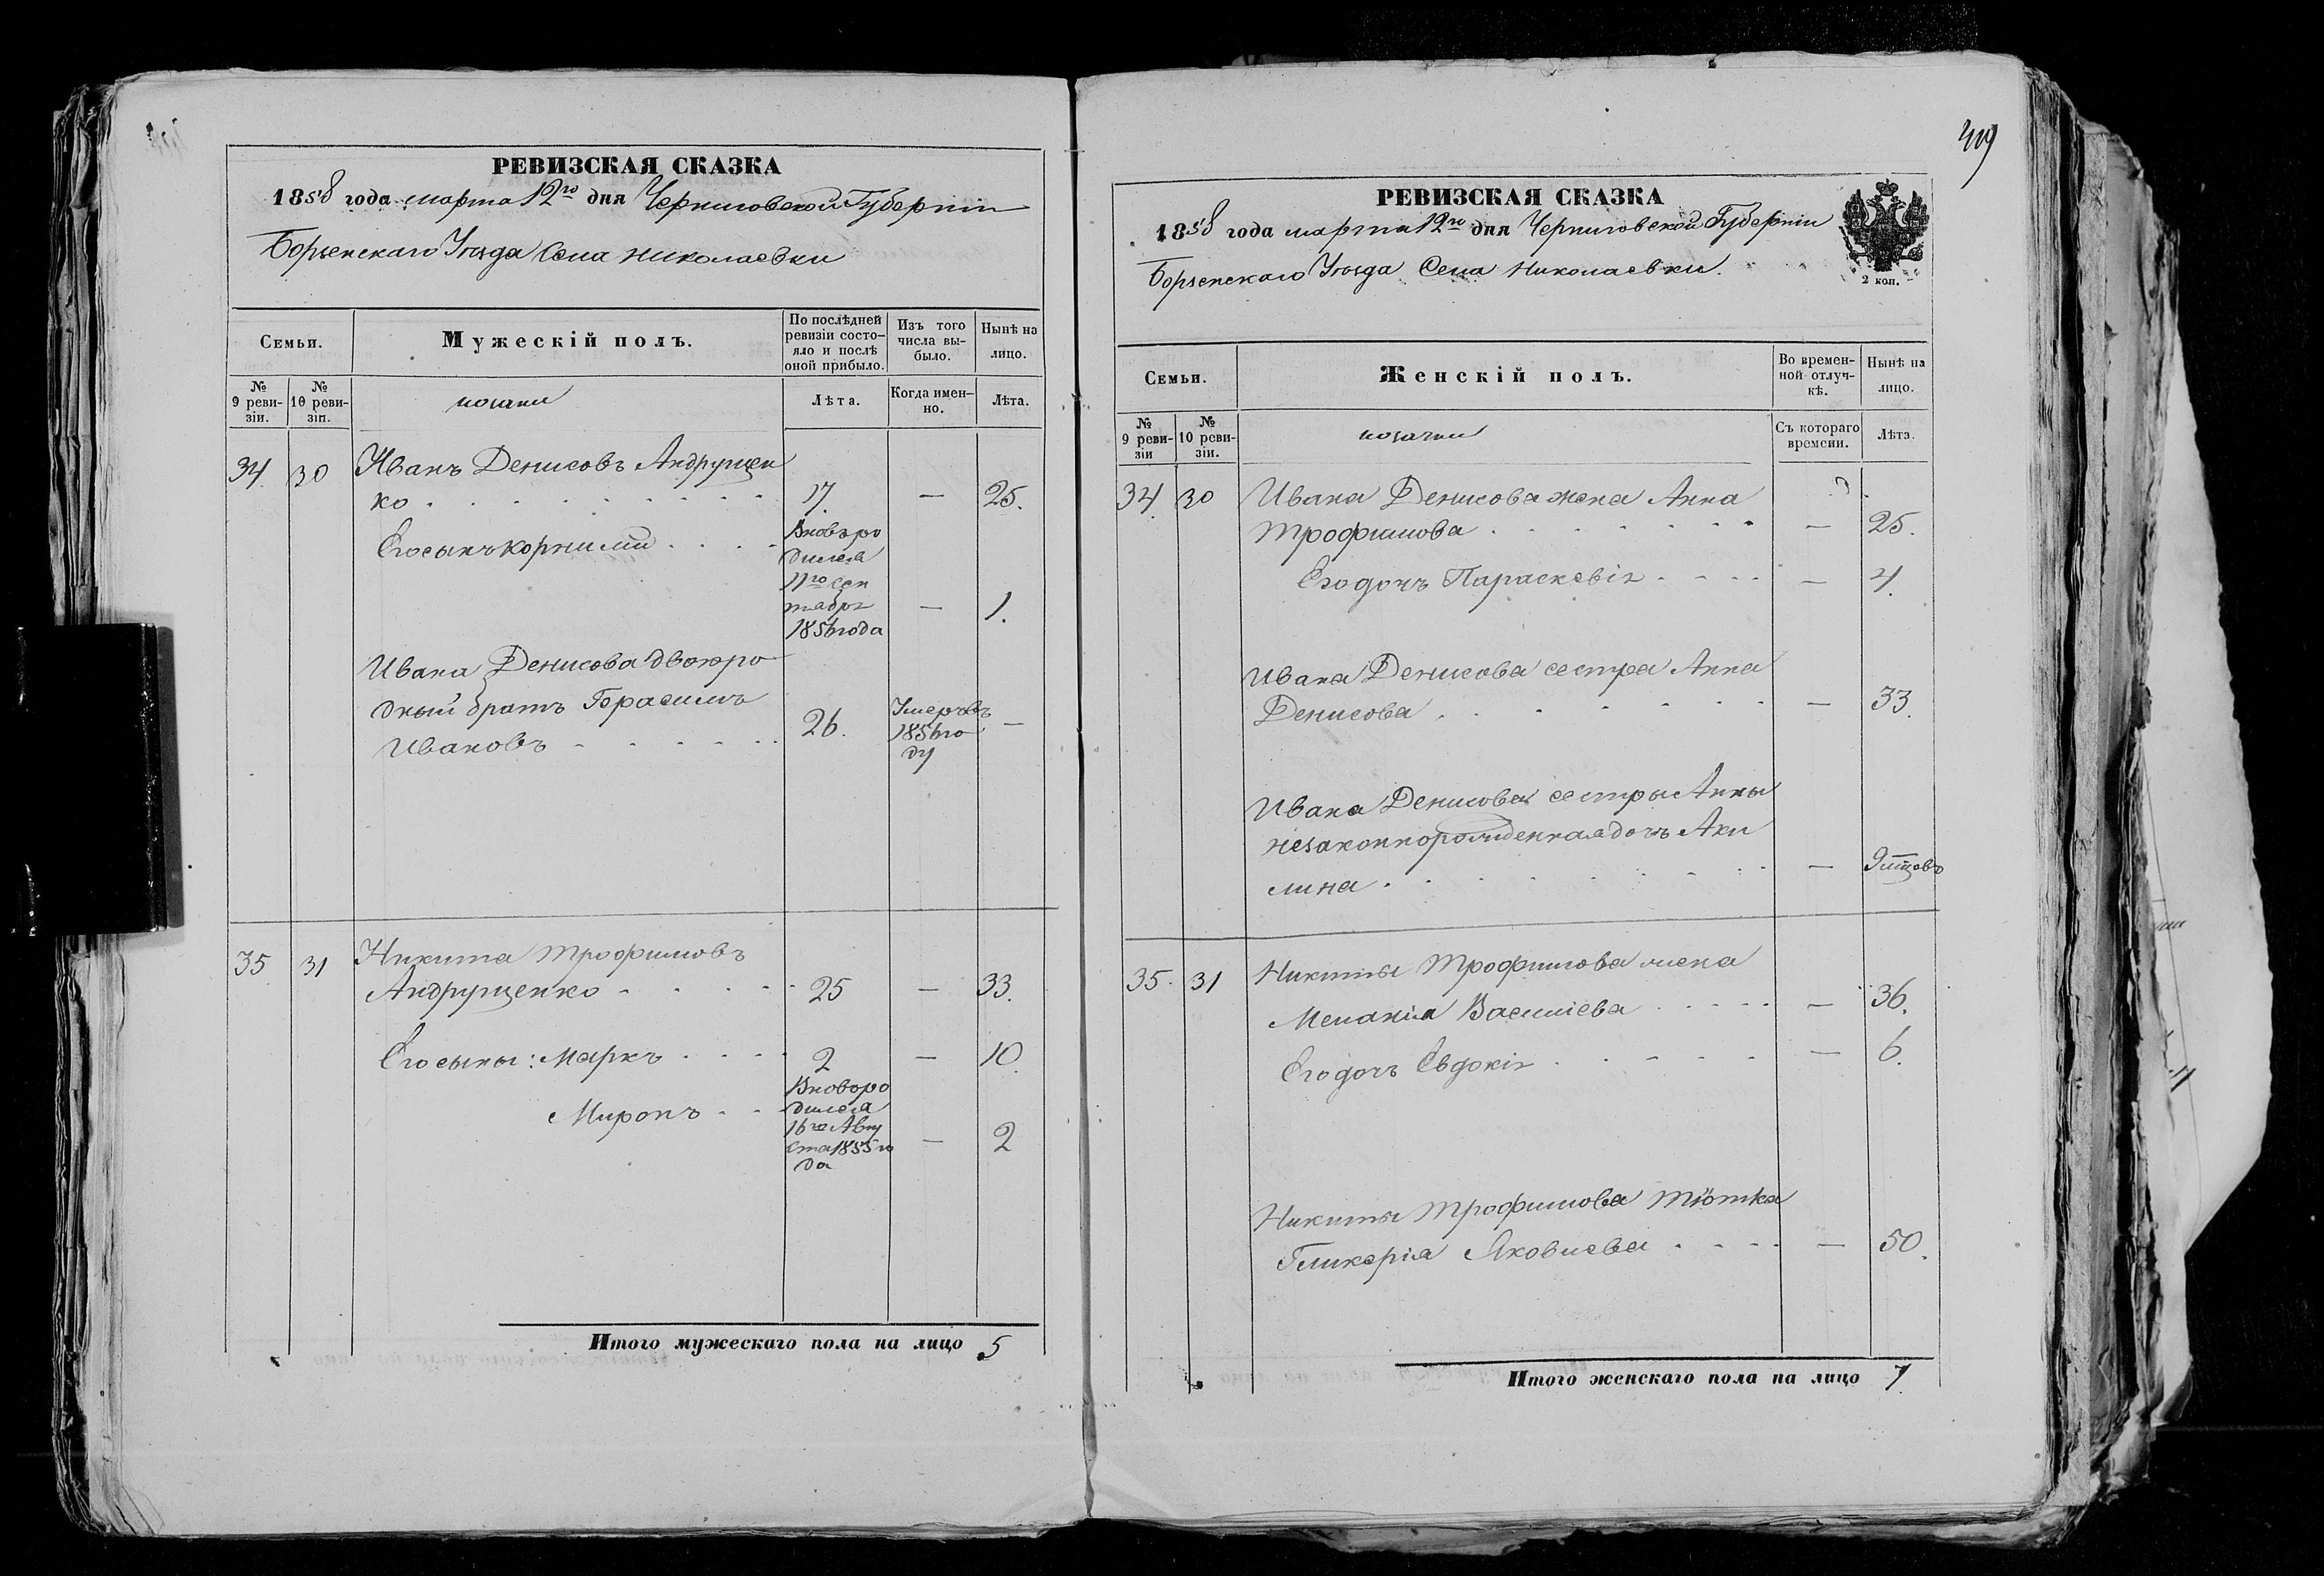 419
РЕВИЗСКАЯ СКАЗКА
1858 года марта 12го дня Черниговской Губерніи
Борзенскаго Уѣзда Села Николаевки
Семьи.
Мужескій полъ.
По послѣдней ревизіи состояло и послѣ оной прибыло.
Изъ того числа выбыло.
Нынѣ на лицо.
№ 9 ревизіи.
№ 10 ревизіи.
козаки
Лѣта.
Когда именно.
Лѣта.
34 30 Иванъ Денисовъ Андрущен
ко . . . . . . . . . 17. — 25.
Егосынъ Корнилій . . . . Вновьро
дился
11го Сен
тября — 1.
1856года
Ивана Денисова двоюро
дный братъ Герасимъ
Ивановъ - - - - - 26. Умеръвъ —
1856го
ду
35 31 Никита Трофимовъ
Андрущенко - - - - 25 — 33.
Егосыны: Маркъ . . . . 2 — 10.
Миронъ - - - Вноворо
дился
16го Авгу
ста1855го — 2
да
Итого мужескаго пола на лицо 5
РЕВИЗСКАЯ СКАЗКА
1858 года марта 12го дня Черниговской Губерніи
Борзенскаго Уѣзда Села Николаевки.
2 коп.
Семьи.
Женскій полъ.
Во временной отлучкѣ.
Нынѣ на лицо.
№ 9 ревизіи
№ 10 ревизіи.
козачки
Съ котораго времени.
Лѣта.
34 30 Ивана Денисова жена Анна
Трофимова . . . . . . . — 25.
Егодочь Параскевія . - - - — 4.
Ивана Денисова сестра Анна
Денисова . . . . . . . — 33.
Ивана Денисова сестры Анны
незаконнорожденная дочь Аки
лина . . . . . . . . — 9мцовъ
35. 31 Никиты Трофимова жена
Меланія Васильева . . - - - — 36.
Егодочь Евдокія . . - - - — 6.
Никиты Трофимова тіотка
Гликерія Яковлева . - - - — 50.
Итого женскаго пола на лицо 7.